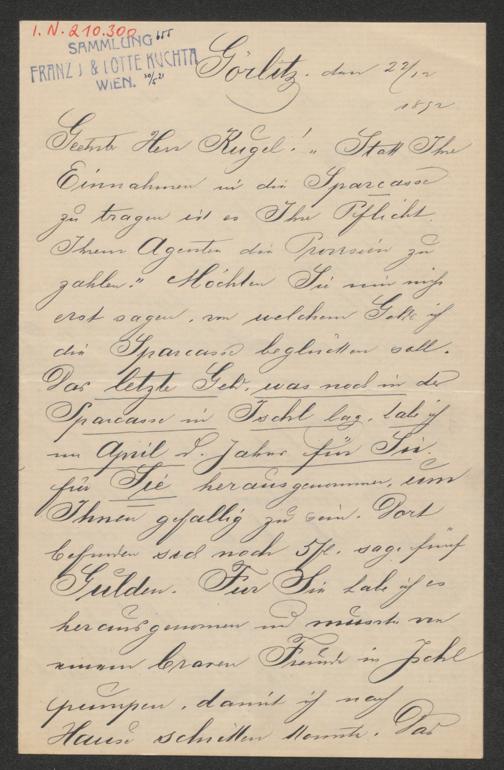 I. N. 210.300
SAMMLUNG 155
FRANZ J & LOTTE KUCHTA
WIEN. 20/5 21
Görlitz. den 22/12
1892
Geehrter Herr Kugel! „Statt Ihre
Einnahmen in die Sparcasse
zu tragen ist es Ihre Pflicht
Ihrem Agenten die Provision zu
zahlen." Möchten Sie mir nicht
erst sagen, von welchem Gelde ich
die Sparcasse beglücken soll.
Das letzte Geld, was noch in der
Sparcasse in Ischl lag, habe ich
im April d. Jahres für Sie.
für Sie herausgenommen, um
Ihnen gefällig zu sein. Dort
befinden sich noch 5 fl. sage fünf
Gulden. Für Sie habe ich es
herausgenommen und musste von
einem braven Freunde in Ischl
pumpen, damit ich nach
Hause schicken konnte. Das